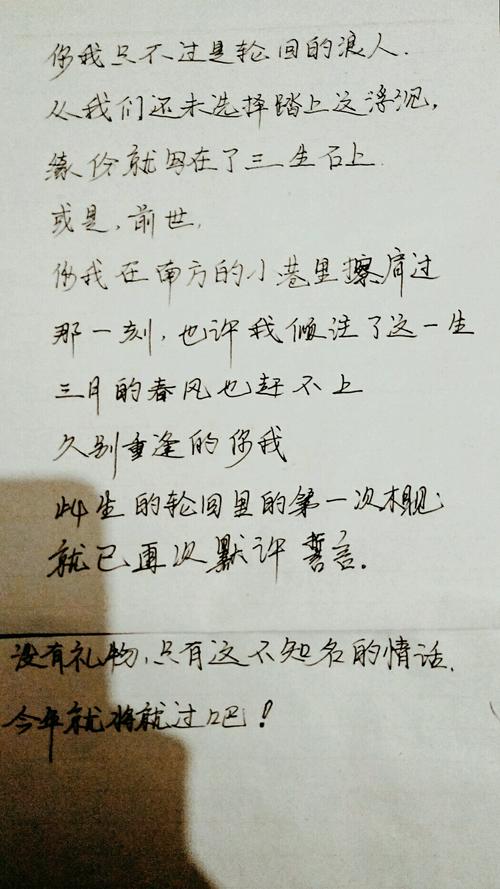 你我只不过是轮回的浪人.
从我们还未选择踏上这浮沉,
缘份就写在了三生石上.
或是,前世,
你我在南方的小巷里擦肩过
那一刻,也许我倾注了这一生
三月的春风也赶不上
久别重逢的你我
此生的轮回里的第一次相见
就已再次默许誓言.
没有礼物,只有这不知名的情话.
今年就将就过吧!